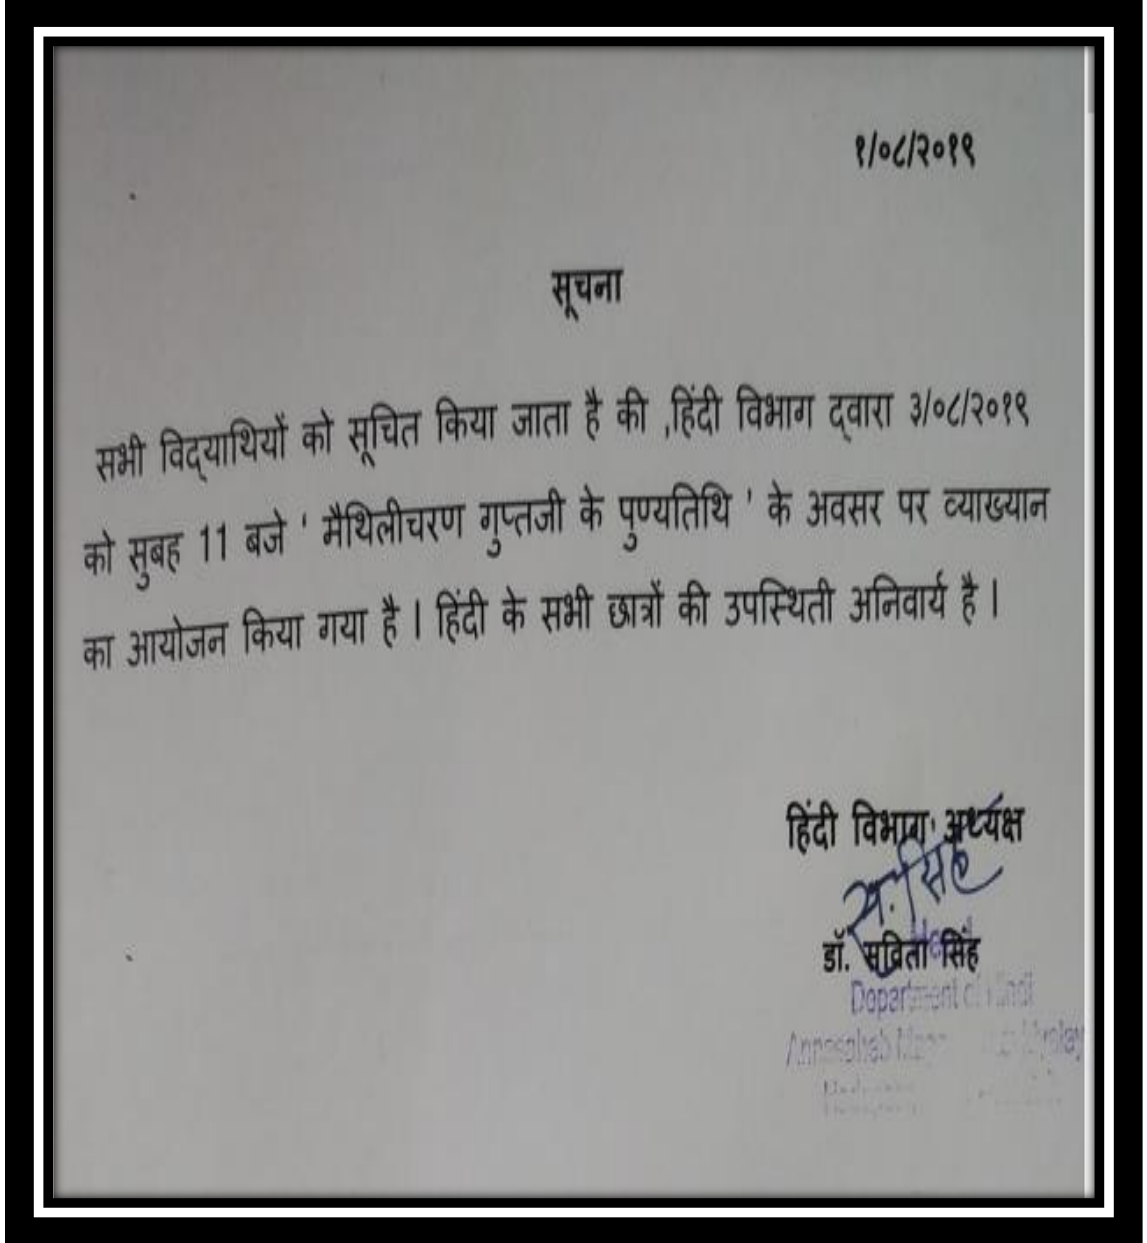 १/०८/२०१९
सूचना
सभी विद्याथियों को सूचित किया जाता है की ,हिंदी विभाग द्वारा ३/०८/२०१९
को सुबह 11 बजे ' मैथिलीचरण गुप्तजी के पुण्यतिथि ' के अवसर पर व्याख्यान
का आयोजन किया गया है । हिंदी के सभी छात्रों की उपस्थिती अनिवार्य है ।
हिंदी विभाग अध्यक्ष
स. सिंह
डॉ. सविता सिंह
Department of Hindi